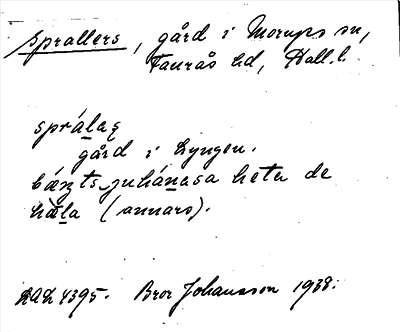 Sprallers, gård i Morups sn,
Faurås hd, Hall. l.
sprálaș
gård i Lyngen.
bæņts juhánasa heter de
hæla (annars).
4395. Bror Johansson 1938.